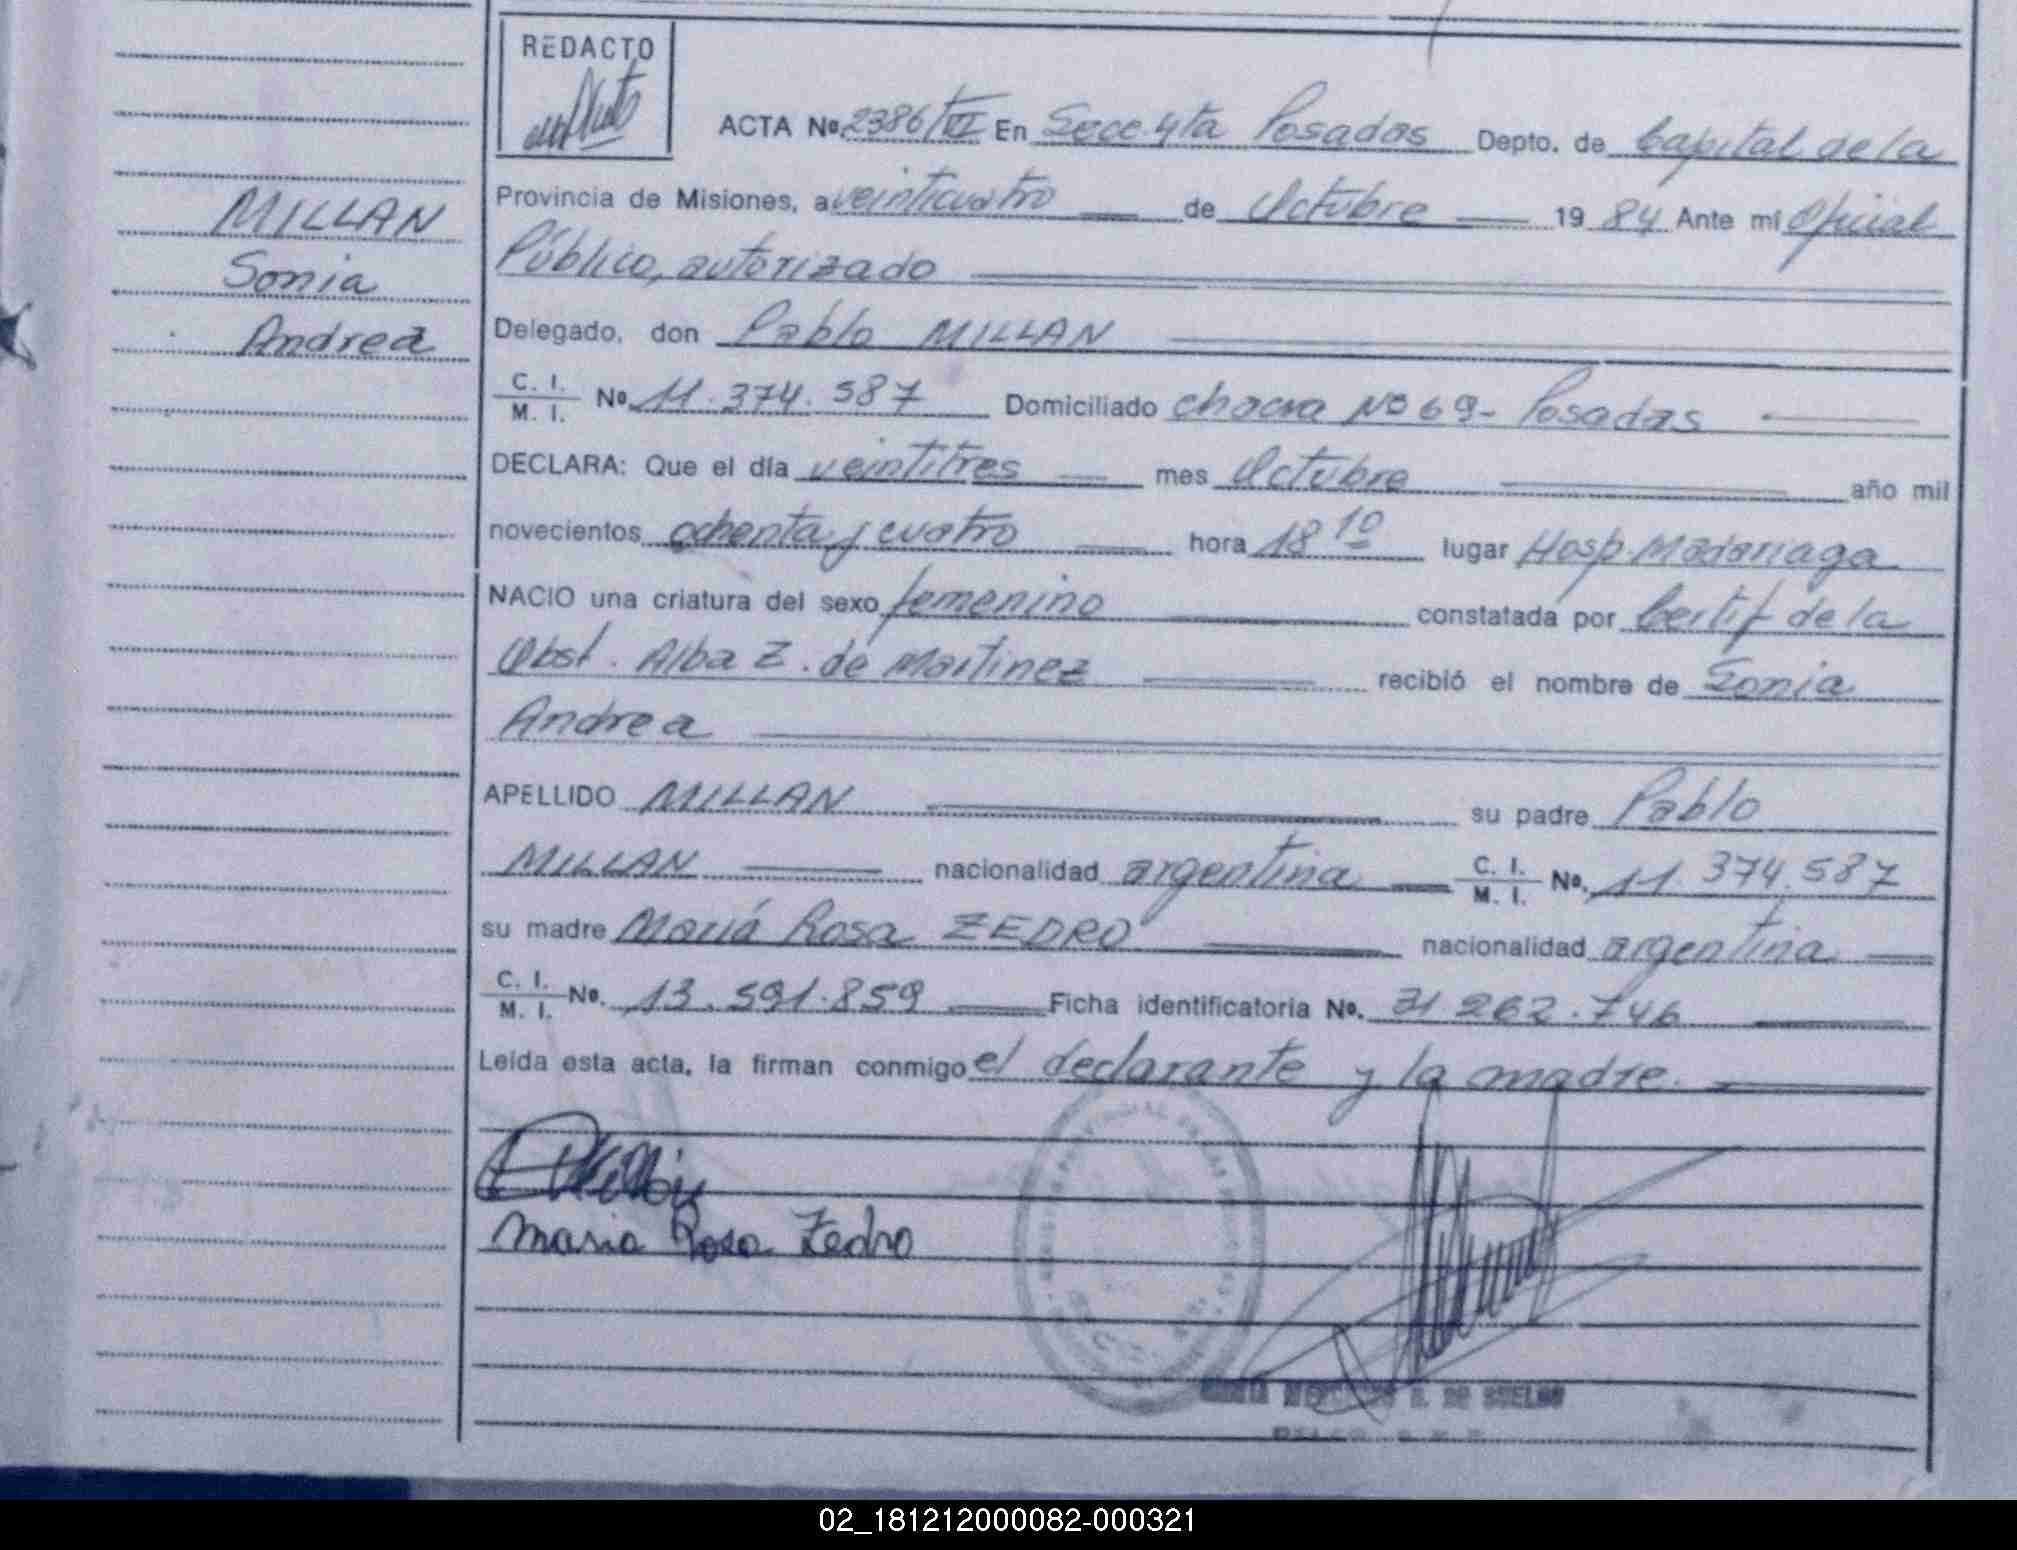 REDACTO
ACTA Nº 2386/VI En Secc 4ta Posadas Depto. de Capital de la
MILLAN
Provincia de Misiones, a veinticuatro de Octubre 1984 Ante mí Oficial
Público, autorizado
Sonia
Delegado, don Pablo MILLAN
Andrea
C. I. M. I. Nº 11.374.587 Domiciliado chacra Nº 69- Posadas
DECLARA: Que el día veintitres mes Octubre año mil
novecientos ochenta y cuatro hora 18 10 lugar Hosp. Madariaga
NACIO una criatura del sexo femenino constatada por Certif de la
Obst. Alba Z. de Martinez recibió el nombre de Sonia
Andrea
APELLIDO MILLAN su padre Pablo
MILLAN nacionalidad argentina C. I. M. I. Nº. 11.374.587
su madre María Rosa ZEDRO nacionalidad argentina
C. I. M. I. Nº. 13.591.859 Ficha identificatoria Nº. 31 262.746
Leída esta acta, la firman conmigo el declarante y la madre.
Maria Rosa Zedro
02_181212000082-000321